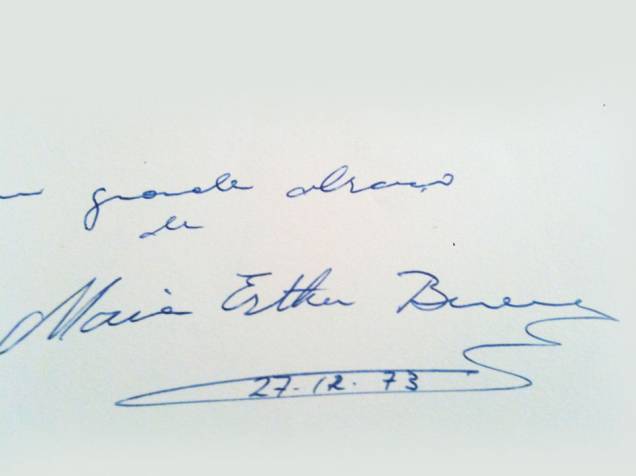 grande abraço
de
Maria Esther Bueno
27.12.73